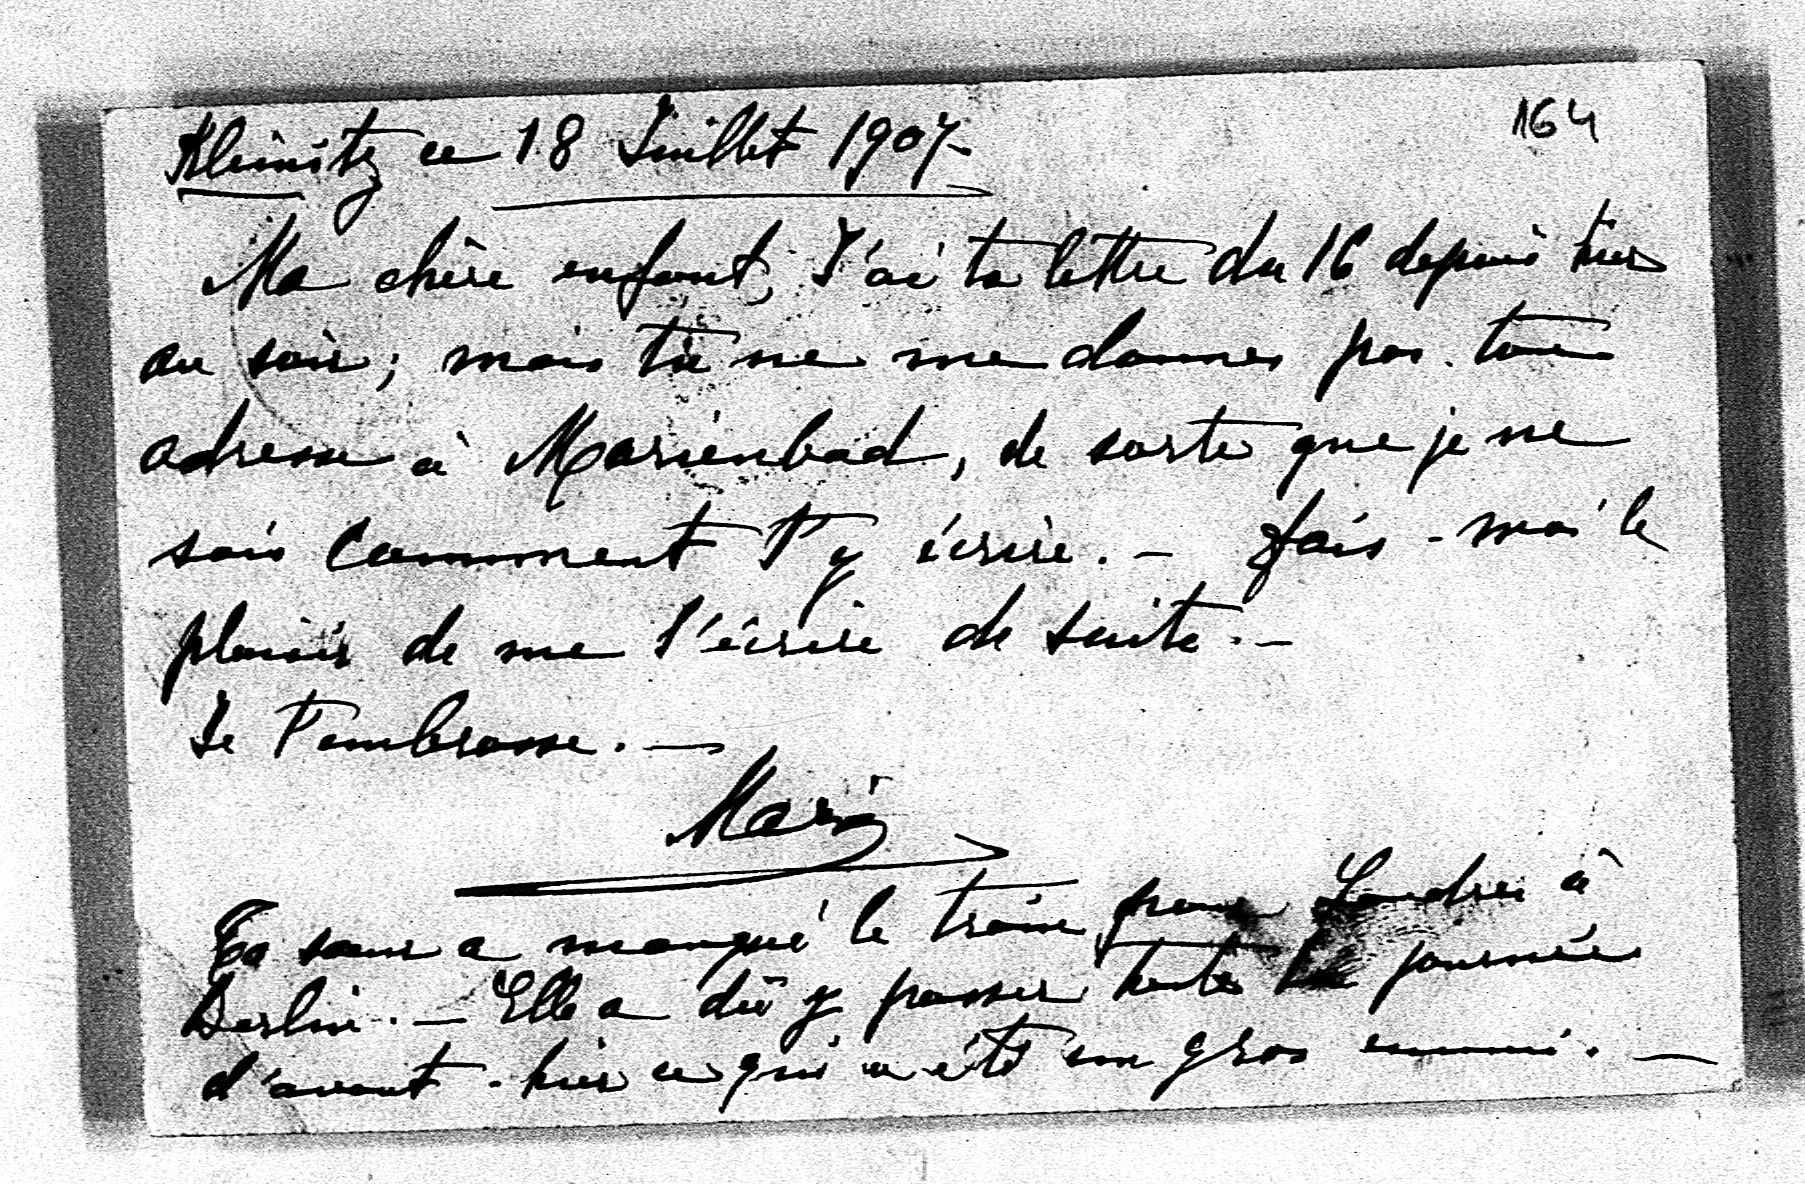 164
Kleinitz ce 18 Juillet 1907-
Ma chère enfant, J'ai ta lettre du 16 depuis hier
au soir; mais tu ne me donnes pas ton
adresse à Marienbad, de sorte que je ne
sais comment t'y écrire. - Fais-moi le
plaisir de me l'écrire de suite. -
Je t'embrasse. -
Marie
Ta sœur a manqué le train pour Londres à
Berlin. - Elle a dû y passer toute la journée
d'avant-hier ce qui a été un gros ennui. -